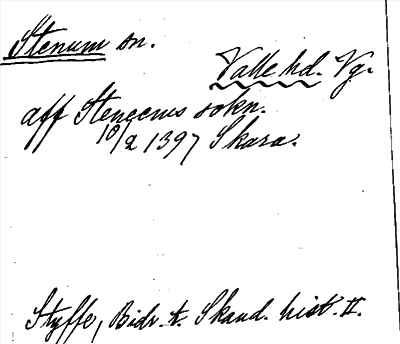 Stenum sn.
Valle hd. Vg.
aff Steneems sokn.
10/2 1397 Skara.
Styffe, Bidr. t. Skand. hist. II.